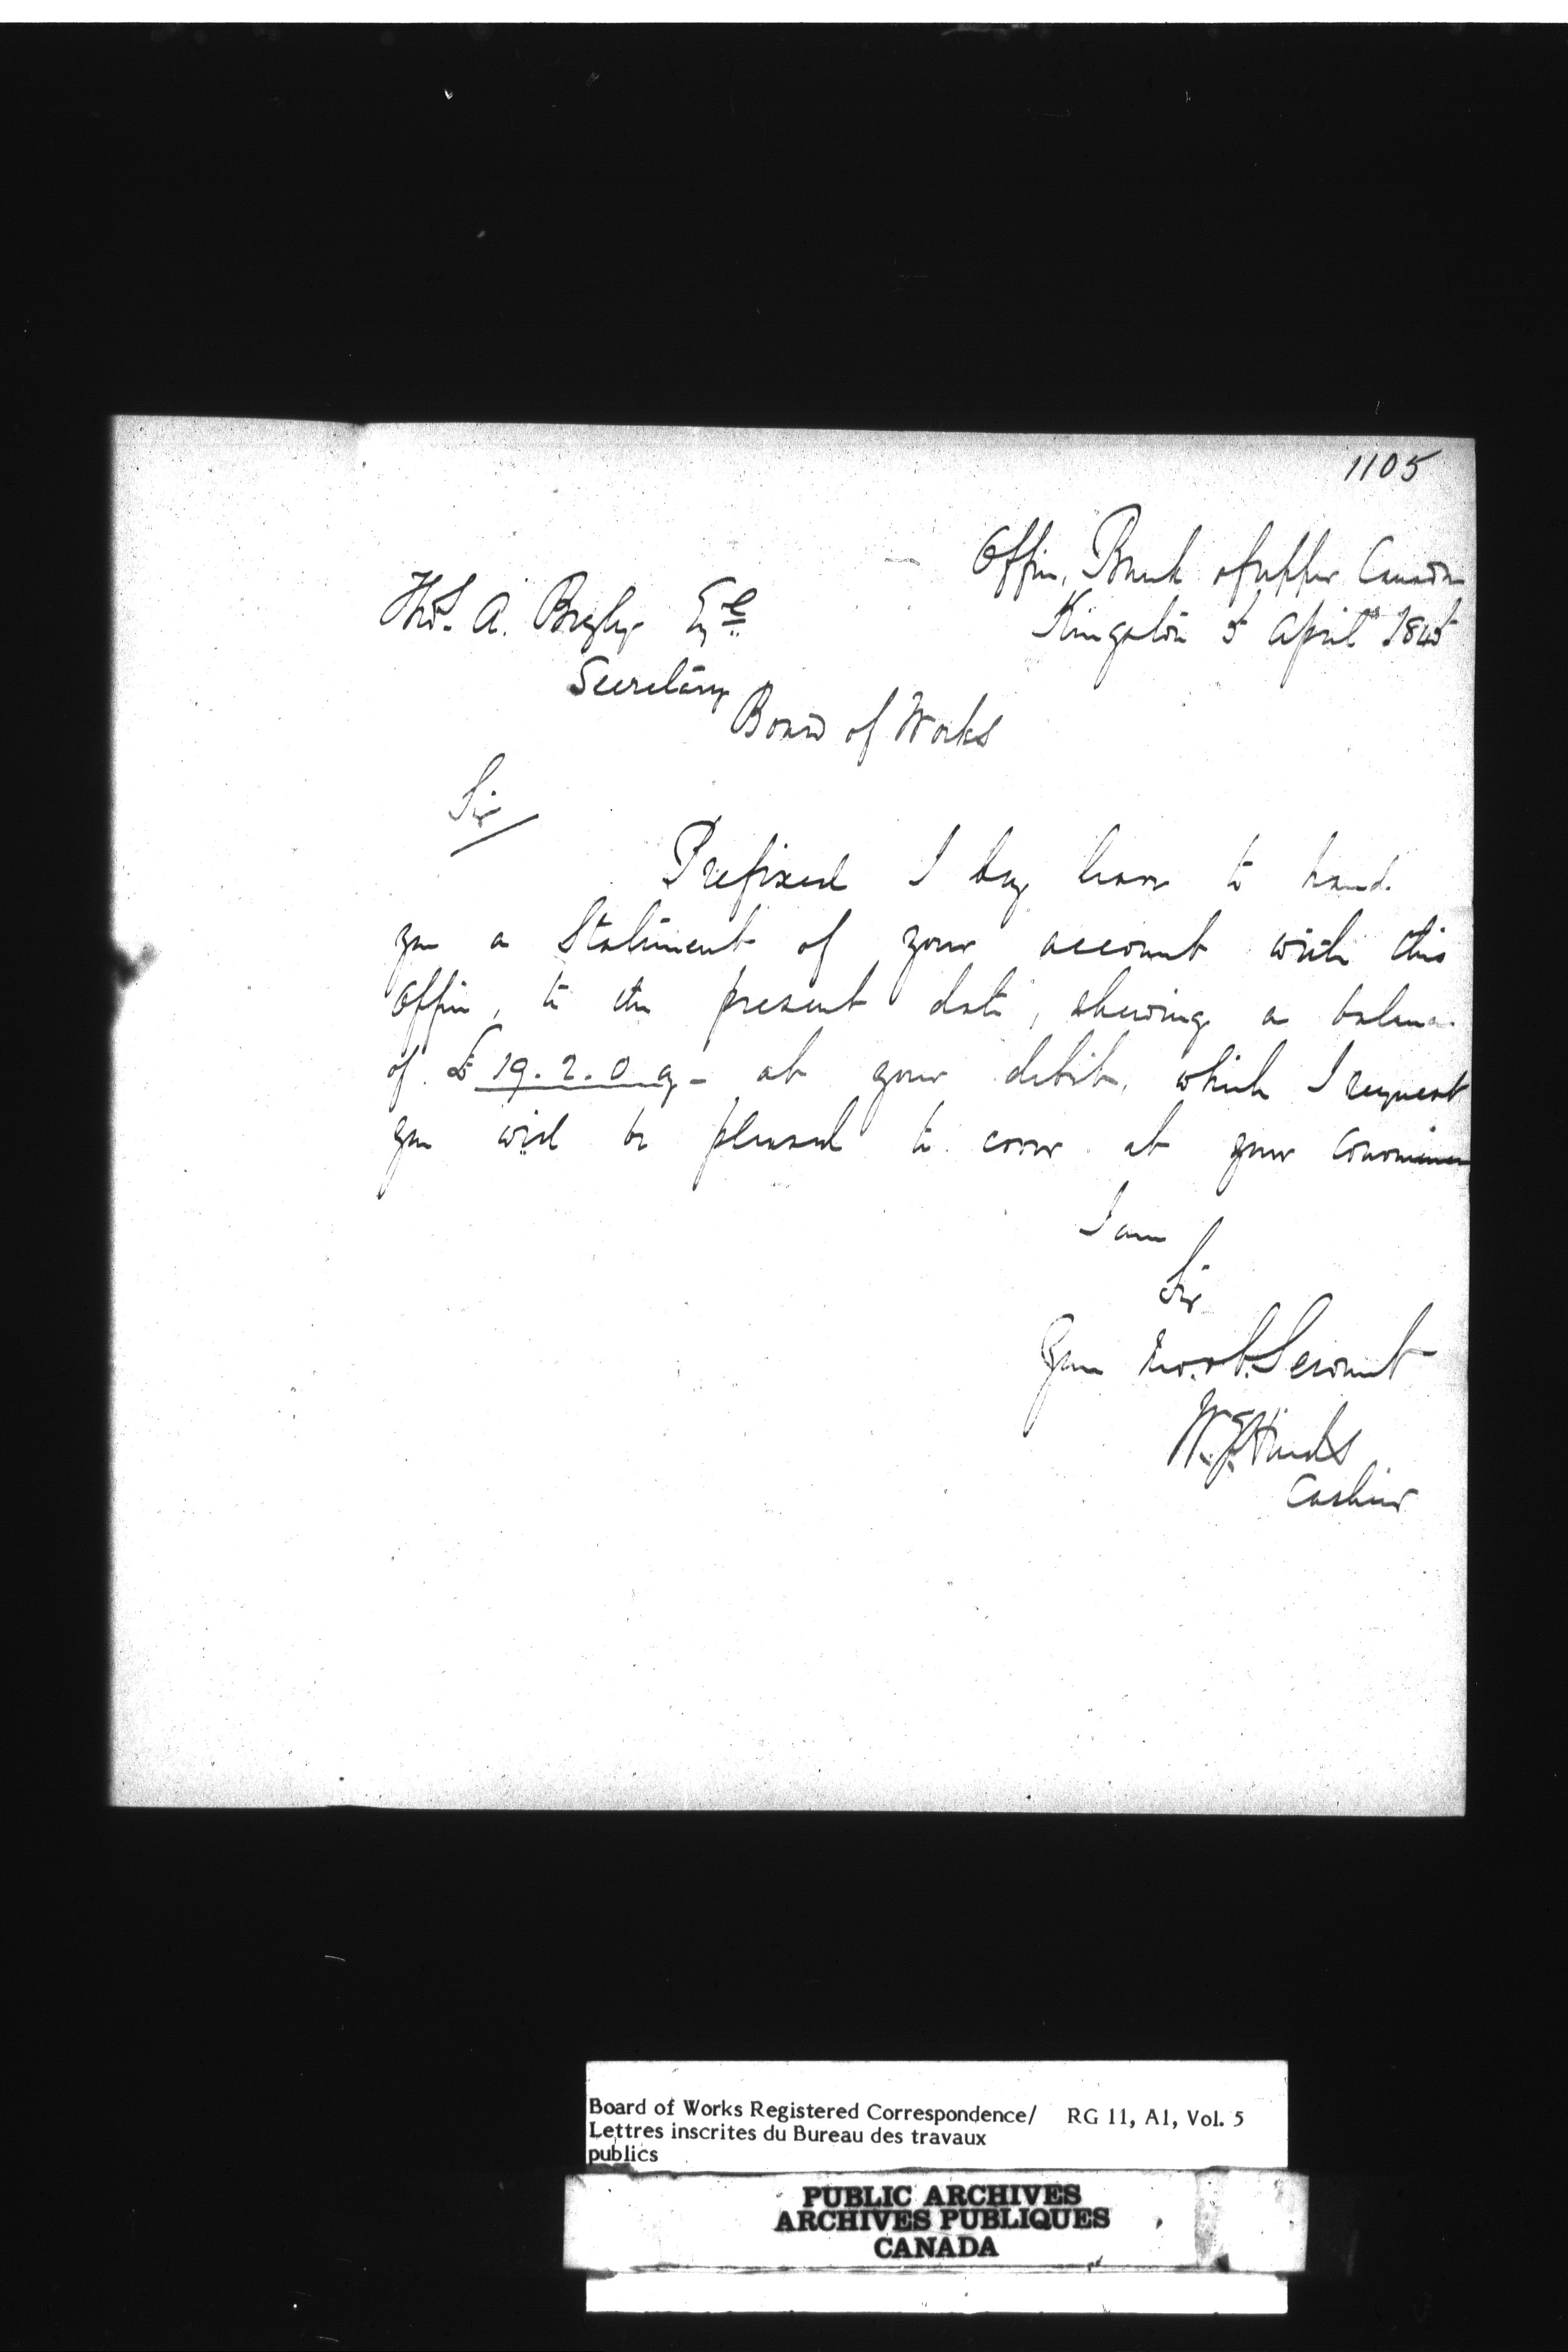 1105
Office, Bank of upper Canada
Kingston 5 April 1845
Thos. A. Begly Esqe
Secretary
Board of Works
Sir
Prefixed I beg leave to hand
you a Statement of your account with this
Office, to the present date, shewing a balance
of £19.2.0 cy - at your debit, which I request
you will be pleased to cover at your convenience
I am
Sir
Your Mo. ob. Servant
W. Hinds
Cashier
Board of Works Registered Correspondence/ RG 11, A1, Vol. 5
Lettres inscrites du Bureau des travaux
publics
PUBLIC ARCHIVES
ARCHIVES PUBLIQUES
CANADA